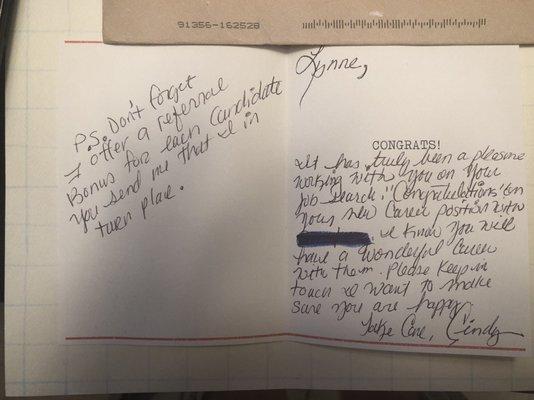 91356-162528
P.S. Don't forget
I offer a referral
Bonus for each candidate
you send me that I in
turn place.
Lynne,
CONGRATS!
It has truly been a pleasure
working with you on your
job search! "Congratulations" on
your new career position with
I know you will
have a wonderful career
with them. Please keep in
touch I want to make
sure you are happy.
Take Care, Cindy